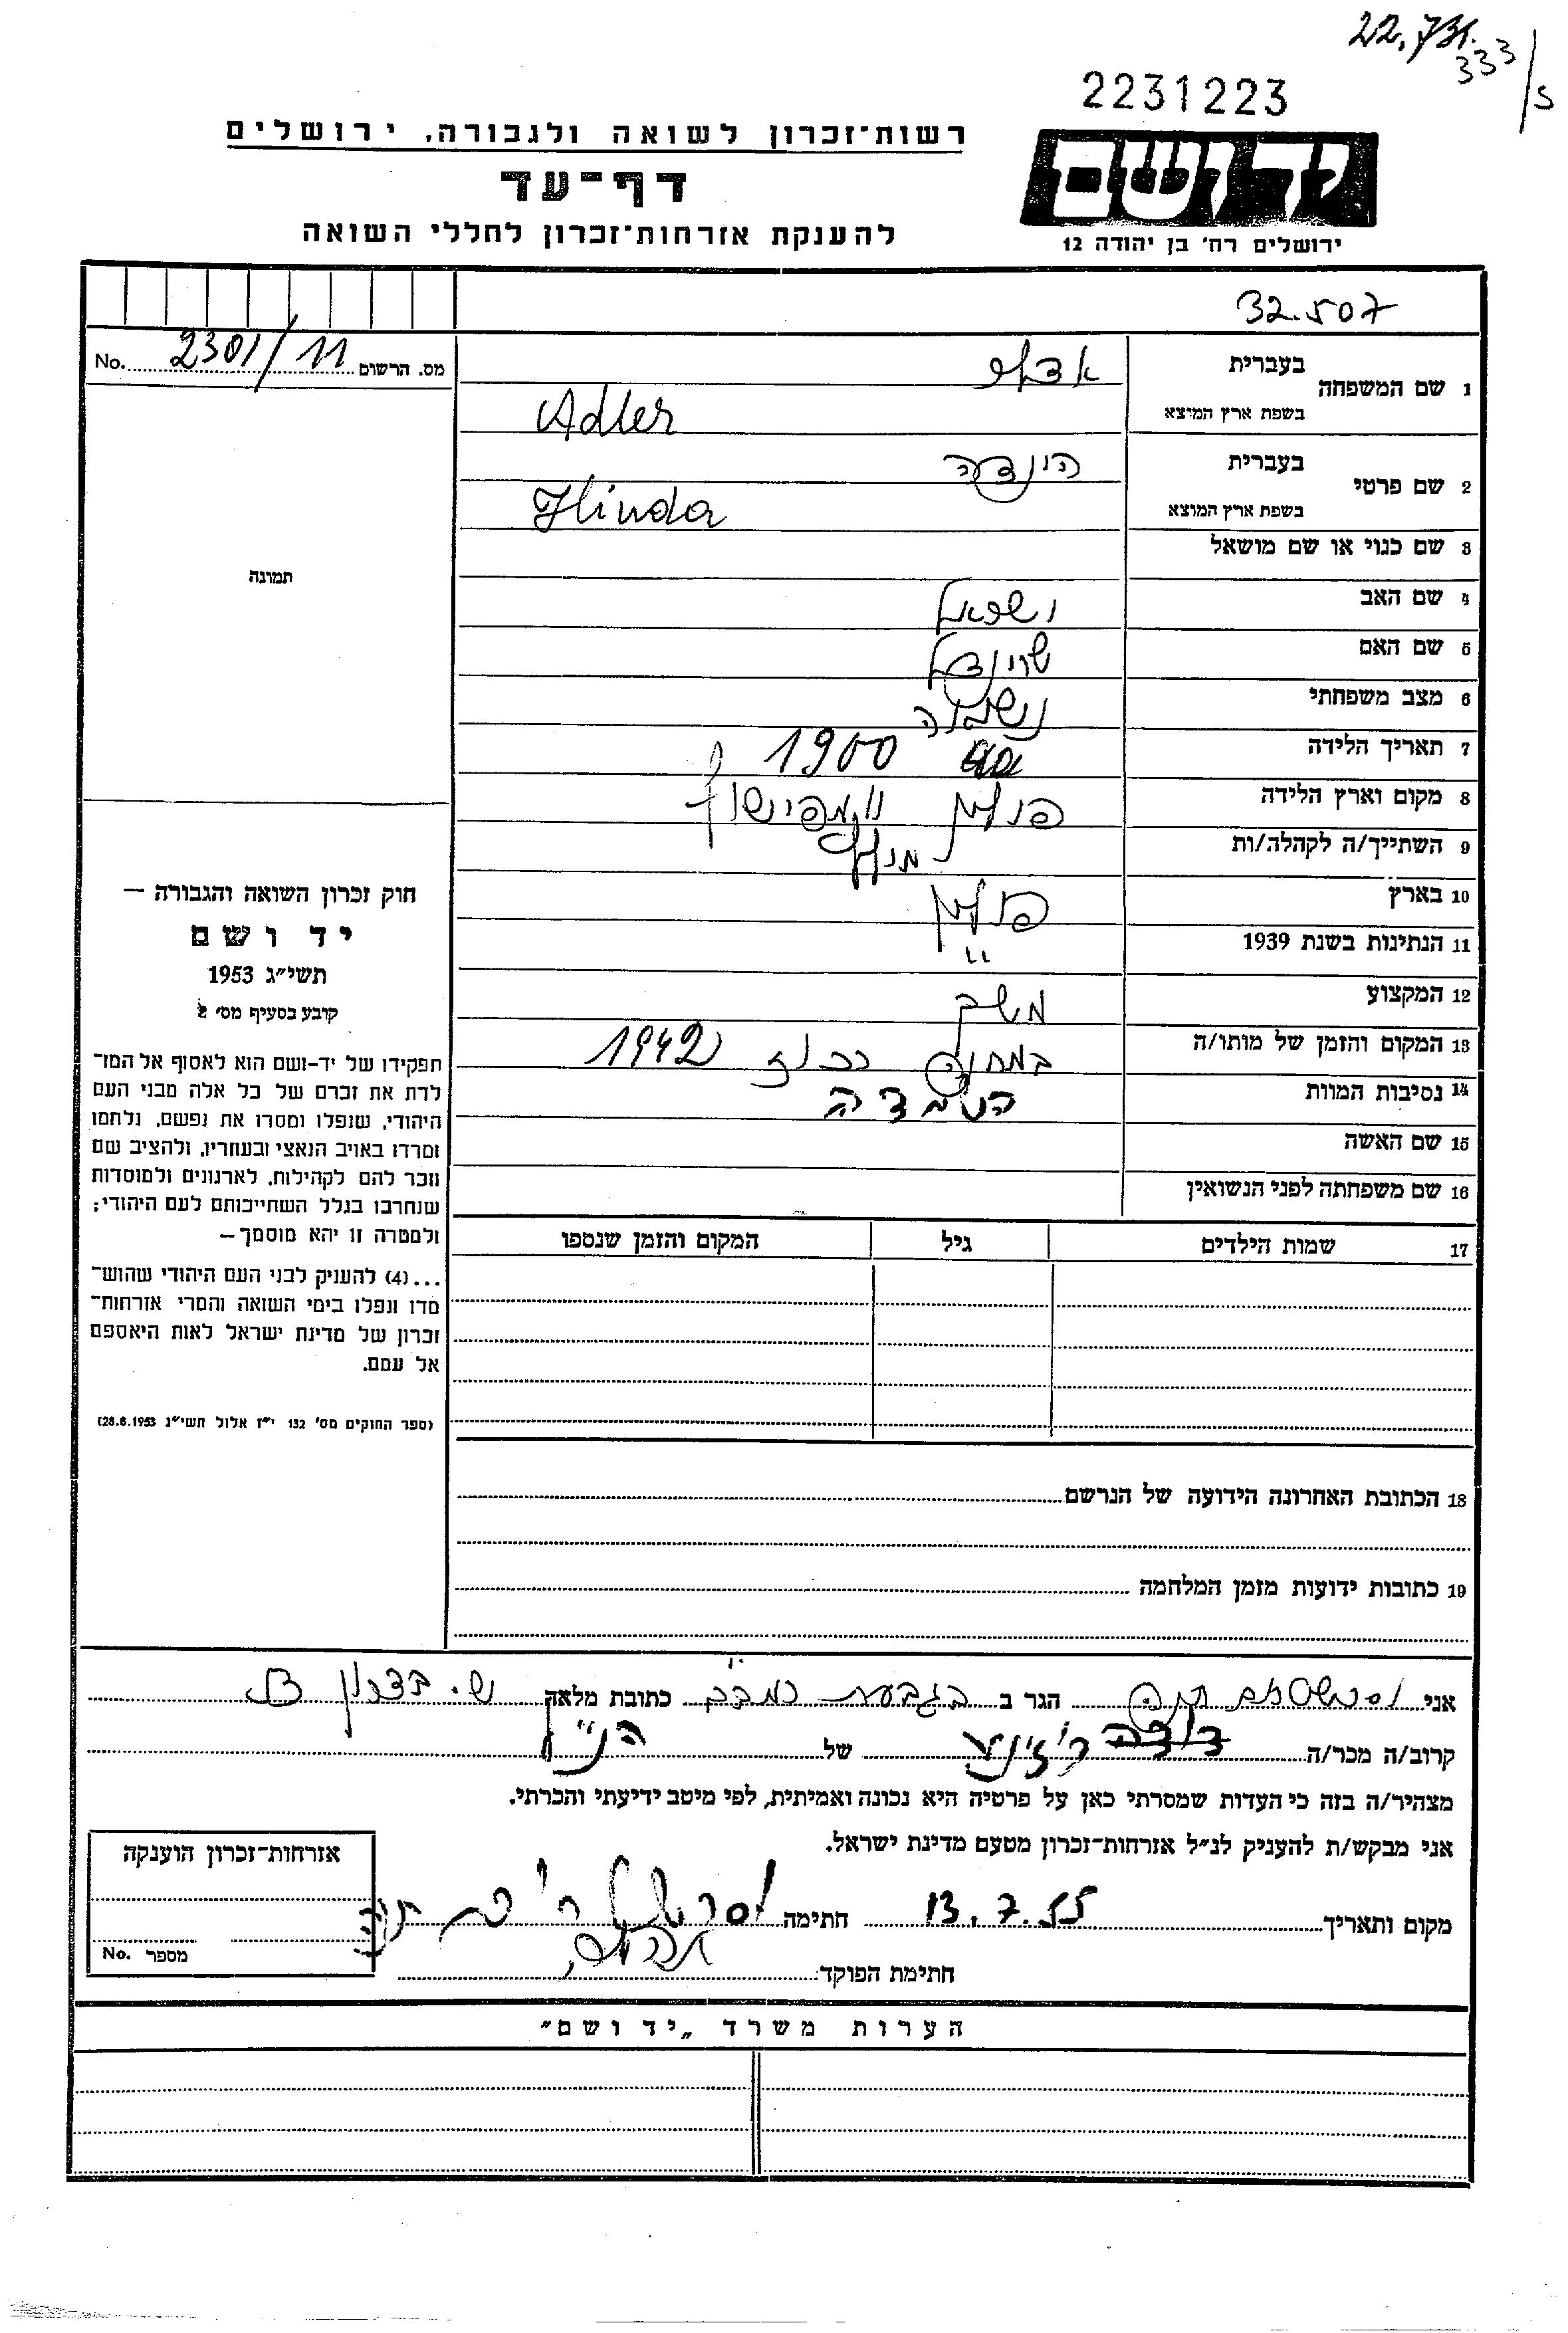 22.731.
333/5
2231223
רשות־זכרון לשואה ולגבורה, ירושלים
דף־עד
להענקת אזרחות־זכרון לחללי השואה
ידושם
ירושלים רח' בן יהודה 12
32.507
מס. הרשום 2301/11 No.
1 שם המשפחה
בעברית אדלר
בשפת ארץ המוצא Adler
2 שם פרטי
בעברית הינדה
בשפת ארץ המוצא Hinda
3 שם כנוי או שם מושאל
4 שם האב
5 שם האם שיינדל
6 מצב משפחתי נשואה
7 תאריך הלידה 1900
8 מקום וארץ הלידה פולין
9 השתייך/ה לקהלה/ות
10 בארץ פולין
11 הנתינות בשנת 1939 "
12 המקצוע
13 המקום והזמן של מותו/ה במחנה 1942
14 נסיבות המוות השמדה
15 שם האשה
16 שם משפחתה לפני הנשואין
17 שמות הילדים גיל המקום והזמן שנספו
18 הכתובת האחרונה הידועה של הנרשם
19 כתובות ידועות מזמן המלחמה
תמונה
חוק זכרון השואה והגבורה –
יד ושם
תשי״ג 1953
קובע בסעיף מס' 2
תפקידו של יד-ושם הוא לאסוף אל המו־
לדת את זכרם של כל אלה מבני העם
היהודי, שנפלו ומסרו את נפשם, נלחמו
ומרדו באויב הנאצי ובעוזריו, ולהציב שם
וזכר להם לקהילות, לארגונים ולמוסדות
שנחרבו בגלל השתייכותם לעם היהודי;
ולמטרה זו יהא מוסמך –
...(4) להעניק לבני העם היהודי שהוש־
מדו ונפלו בימי השואה והמרי אזרחות־
זכרון של מדינת ישראל לאות היאספם
אל עמם.
(ספר החוקים מס' 132 י״ז אלול תשי״ג 28.8.1953)
אני חנה הגר ב בגבעת כתובת מלאה
קרוב/ה מכר/ה דודה של הנ״ל
מצהיר/ה בזה כי העדות שמסרתי כאן על פרטיה היא נכונה ואמיתית, לפי מיטב ידיעתי והכרתי.
אני מבקש/ת להעניק לנ״ל אזרחות־זכרון מטעם מדינת ישראל.
מקום ותאריך 13.7.55 חתימה
חתימת הפוקד:
אזרחות־זכרון הוענקה
מספר No.
הערות משרד „יד ושם״